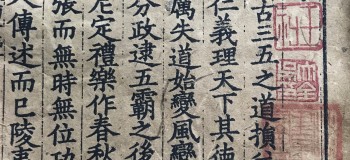 古三五之道損
仁義理天下其德
厲失道始變風變
分政逮五霸之後
尼定禮樂作春秋
張而無時無位功
傳述而已陵夷